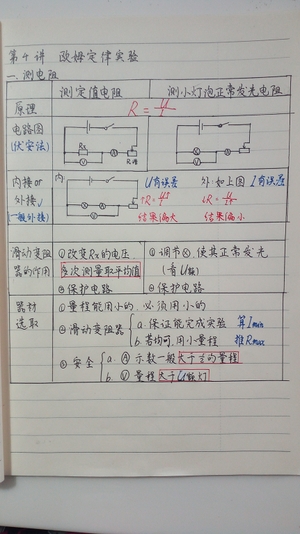 第4讲 欧姆定律实验
一、测电阻
测定值电阻 测小灯泡正常发光电阻
原理 R=U/I
电路图
(伏安法)
Rx
A
V
R滑
A
V
内接or
外接√
一般外接
内:
A
V
U有误差
↑R=U↑/I
结果偏大
外:如上图 I有误差
↓R=U/I↑
结果偏小
滑动变阻
器的作用
①改变Rx的电压,
多次测量取平均值
②保护电路
①调节⊗,使其正常发光
(看U额)
②保护电路
器材
选取
①量程能用小的,必须用小的
②滑动变阻器 a.保证能完成实验 算Imin
b.若均可,用小量程 推Rmax
③安全 a. Ⓐ示数一般大于⅓的量程
b. Ⓥ量程大于U额灯